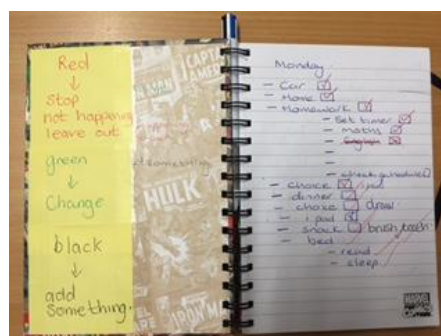 Red
↓
stop
not happening
leave out
green
↓
Change
black
↓
add
something.
CAPTAIN
AMERICA
HULK
IRON MA
something
Monday
- Car
- Home
- Homework
- Set timer
- maths
- English
-
-
- check schedule
- choice ipad
- dinner
- choice draw
- ipad
- snack brush teeth
- bed
- read
- sleep
MARVEL